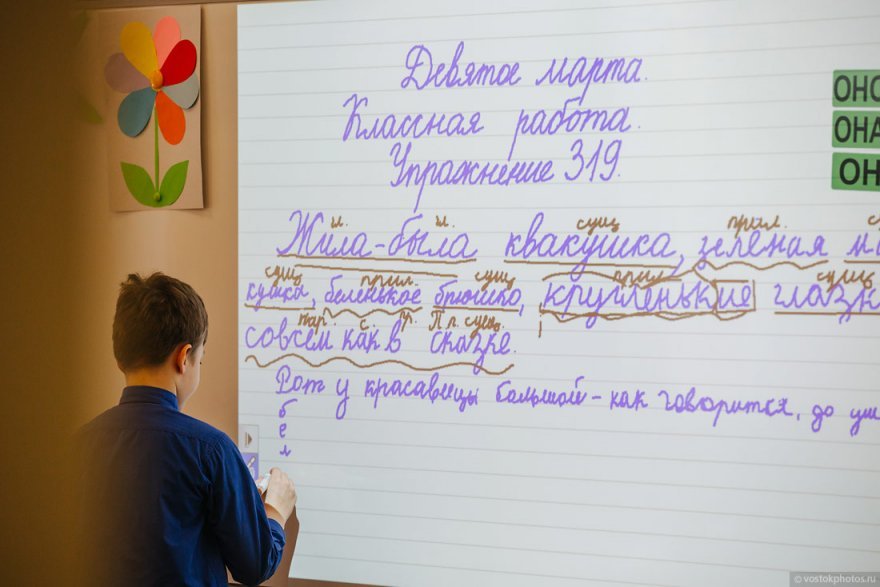 Девятое марта.
Классная работа.
Упражнение 319.
ОНО
ОНА
ОН
и. и. сущ прил. с
Жила-была квакушка, зелёная ма
сущ прил. сущ прил. сущ
кушка, беленькое брюшко, кругленькие глазк
нар. с. п. П п. сущ.
совсем как в сказке.
Рот у красавицы большой - как говорится, до уш
б
е
л
© vostokphotos.ru